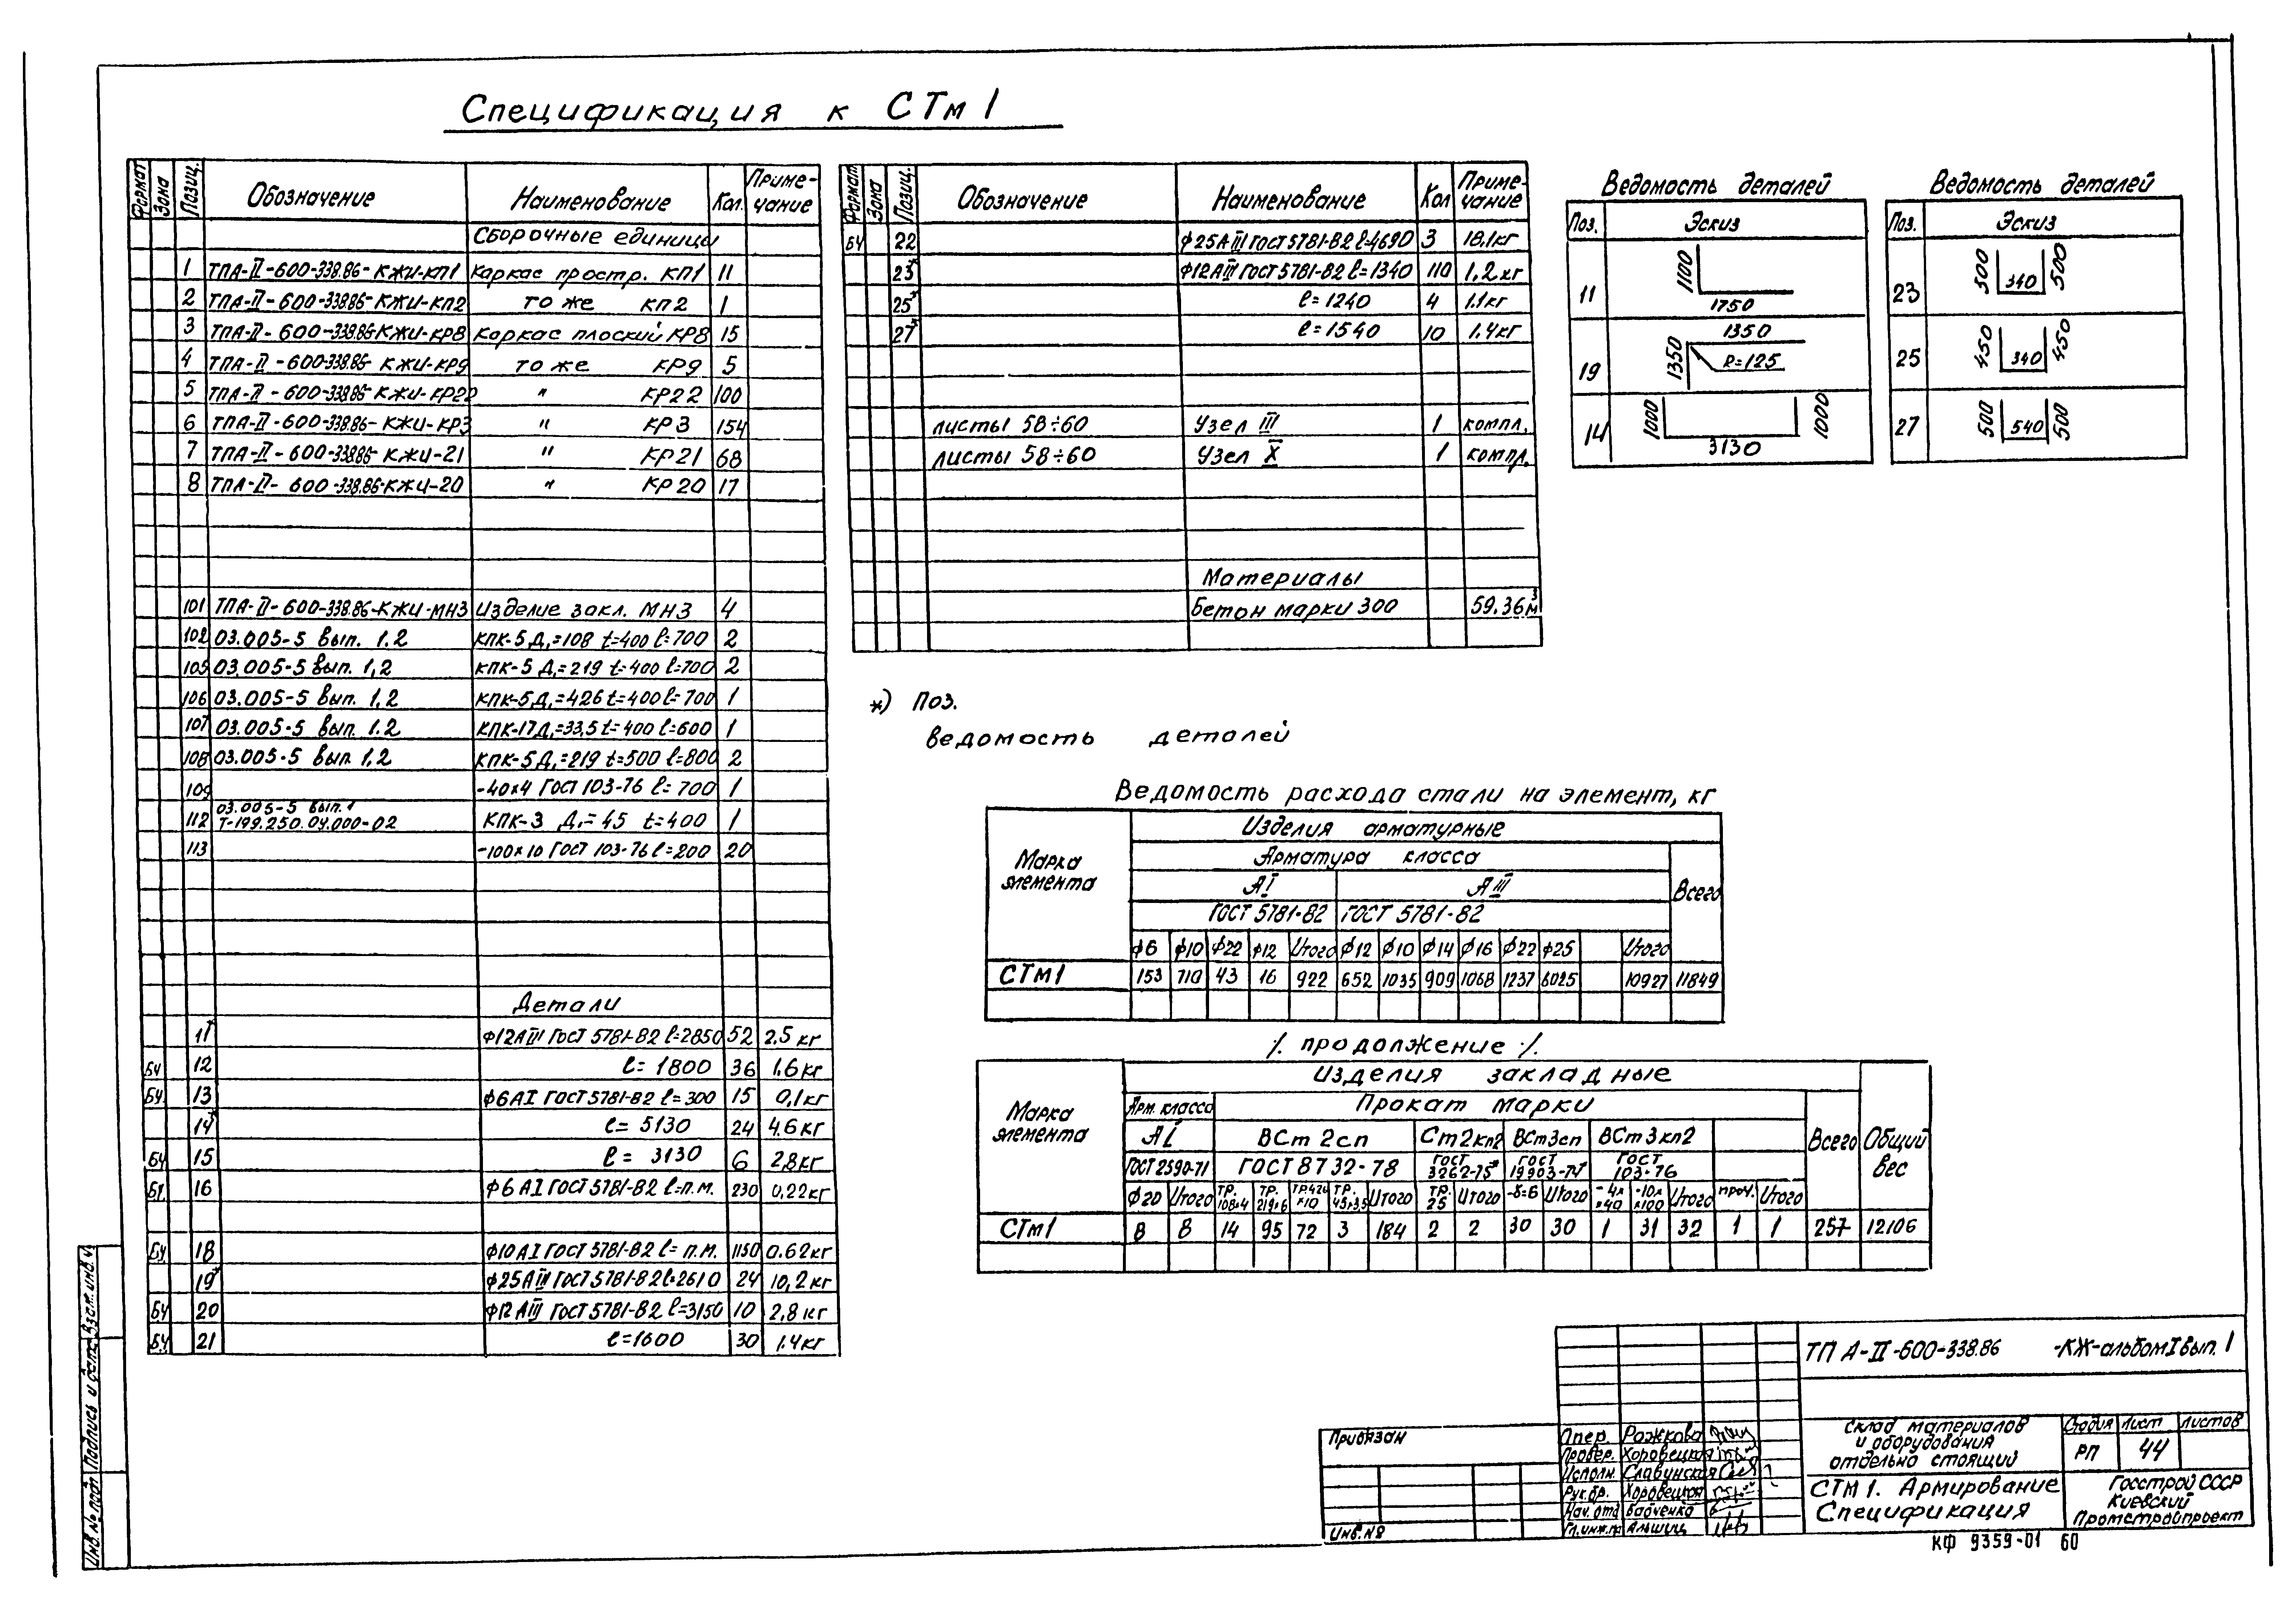 Спецификация к СТм1
Формат Зона Позиц. Обозначение Наименование Кол. Примечание
Сборочные единицы
1 ТПА-II-600-338.86-КЖИ-КП1 Каркас простр. КП1 11
2 ТПА-II-600-338.86-КЖИ-КП2 то же КП2 1
3 ТПА-II-600-338.86-КЖИ-КР8 Каркас плоский КР8 15
4 ТПА-II-600-338.86-КЖИ-КР9 то же КР9 5
5 ТПА-II-600-338.86-КЖИ-КР22 " КР22 100
6 ТПА-II-600-338.86-КЖИ-КР3 " КР3 154
7 ТПА-II-600-338.86-КЖИ-21 " КР21 68
8 ТПА-II-600-338.86-КЖИ-20 " КР20 17
101 ТПА-II-600-338.86-КЖИ-МН3 Изделие закл. МН3 4
102 03.005-5 вып. 1.2 КПК-5 Д₁=108 t=400 ℓ=700 2
105 03.005-5 вып. 1,2 КПК-5 Д₁=219 t=400 ℓ=700 2
106 03.005-5 вып. 1,2 КПК-5 Д₁=426 t=400 ℓ=700 1
107 03.005-5 вып. 1.2 КПК-17 Д₁=33,5 t=400 ℓ=600 1
108 03.005-5 вып 1,2 КПК-5 Д₁=219 t=500 ℓ=800 2
109 -40х4 ГОСТ 103-76 ℓ=700 1
112 03.005-5 вып. 1 Т-199.250.04.000-02 КПК-3 Д₁=45 t=400 1
113 -100х10 ГОСТ 103-76 ℓ=200 20
Детали
11* ф12АIII ГОСТ 5781-82 ℓ=2850 52 2.5 кг
БЧ 12 ℓ=1800 36 1,6 кг
БЧ 13 ф6АI ГОСТ 5781-82 ℓ=300 15 0,1 кг
14* ℓ=5130 24 4.6 кг
БЧ 15 ℓ=3130 6 2,8 кг
БЧ 16 ф6 АI ГОСТ 5781-82 ℓ=п.м. 230 0,22 кг
БЧ 18 ф10 АI ГОСТ 5781-82 ℓ=п.м. 1150 0.62 кг
19* ф25АIII ГОСТ 5781-82 ℓ=2610 24 10,2 кг
БЧ 20 ф12 АIII ГОСТ 5781-82 ℓ=3150 10 2,8 кг
БЧ 21 ℓ=1600 30 1.4 кг
Формат Зона Позиц. Обозначение Наименование Кол Примечание
БЧ 22 ф25АIII ГОСТ 5781-82 ℓ=4690 3 18.1 кг
23* ф12АIII ГОСТ 5781-82 ℓ=1340 110 1,2 кг
25* ℓ=1240 4 1.1 кг
27* ℓ=1540 10 1.4 кг
листы 58÷60 Узел III 1 компл.
листы 58÷60 Узел X 1 компл.
Материалы
Бетон марки 300 59.36 м³
*) Поз.
ведомость деталей
Ведомость деталей
Поз. Эскиз
11 1100 1750
19 1350 1350 R=125
14 1000 3130 1000
Ведомость деталей
Поз. Эскиз
23 500 340 500
25 450 340 450
27 500 540 500
Ведомость расхода стали на элемент, кг
Марка элемента
Изделия арматурные
Арматура класса
АI АIII Всего
ГОСТ 5781-82 ГОСТ 5781-82
ф6 ф10 ф22 ф12 Итого ф12 ф10 ф14 ф16 ф22 ф25 Итого
СТм1 153 710 43 16 922 652 1035 909 1068 1237 6025 10927 11849
⁒ продолжение ⁒
Марка элемента
Изделия закладные
Арм. класса Прокат марки
АI ВСт 2сп Ст2кп2 ВСт3сп ВСт3кп2 Всего Общий вес
ГОСТ 2590-71 ГОСТ 8732-78 ГОСТ 3262-75* ГОСТ 19903-74* ГОСТ 103-76
ф20 Итого ТР. 108х4 ТР. 219х6 ТР.426 х10 ТР. 45х3,5 Итого ТР. 25 Итого -δ=6 Итого -4х х40 -10х х100 Итого проч. Итого
СТм1 8 8 14 95 72 3 184 2 2 30 30 1 31 32 1 1 257 12106
ТП А-II-600-338.86 -КЖ-альбом I вып. 1
Склад материалов и оборудования отдельно стоящий
Стадия Лист Листов
РП 44
СТм1. Армирование Спецификация
Госстрой СССР Киевский Промстройпроект
Привязан
Инв. №
Рожкова
Провер. Хоровецкая
Исполн. Славунская
Рук. бр. Хоровецкая
Нач. отд Бабченко
Гл.инж.пр Альшиц
Инв. № подл Подпись и дата Взам. инв. №
КФ 9359-01 60